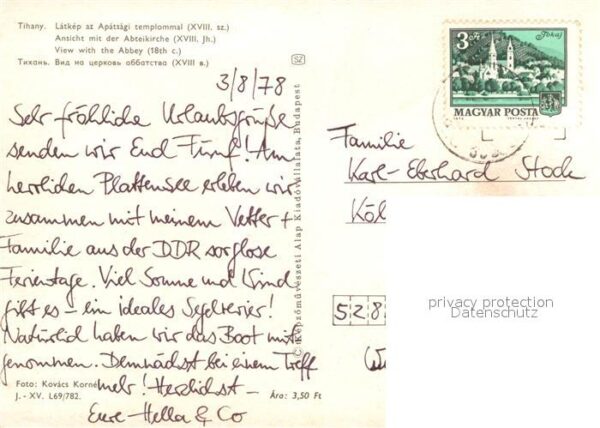 Tihany. Látkép az Apátsági templommal (XVIII. sz.)
Ansicht mit der Abteikirche (XVIII. Jh.)
View with the Abbey (18th c.)
Тихань. Вид на церковь аббатства (XVIII в.)
SZ
3/8/78
Sehr fröhliche Urlaubsgrüße
senden wir Euch Fünf! Am
herrlichen Plattensee erleben wir
zusammen mit meinem Vetter +
Familie aus der DDR sorglose
Ferientage. Viel Sonne und Wind
gibt es – ein ideales Segelrevier!
Natürlich haben wir das Boot mit
genommen. Demnächst bei einem Treff
mehr! Herzlichst –
Eure Hella & Co
Foto: Kovács Kornél
J. - XV. L69/782.
Ára: 3,50 Ft
© Képzőművészeti Alap Kiadóvállalata, Budapest
3 Ft
Tokaj
MAGYAR POSTA
Familie
Karl-Eberhard Stock
Köl
528
privacy protection
Datenschutz